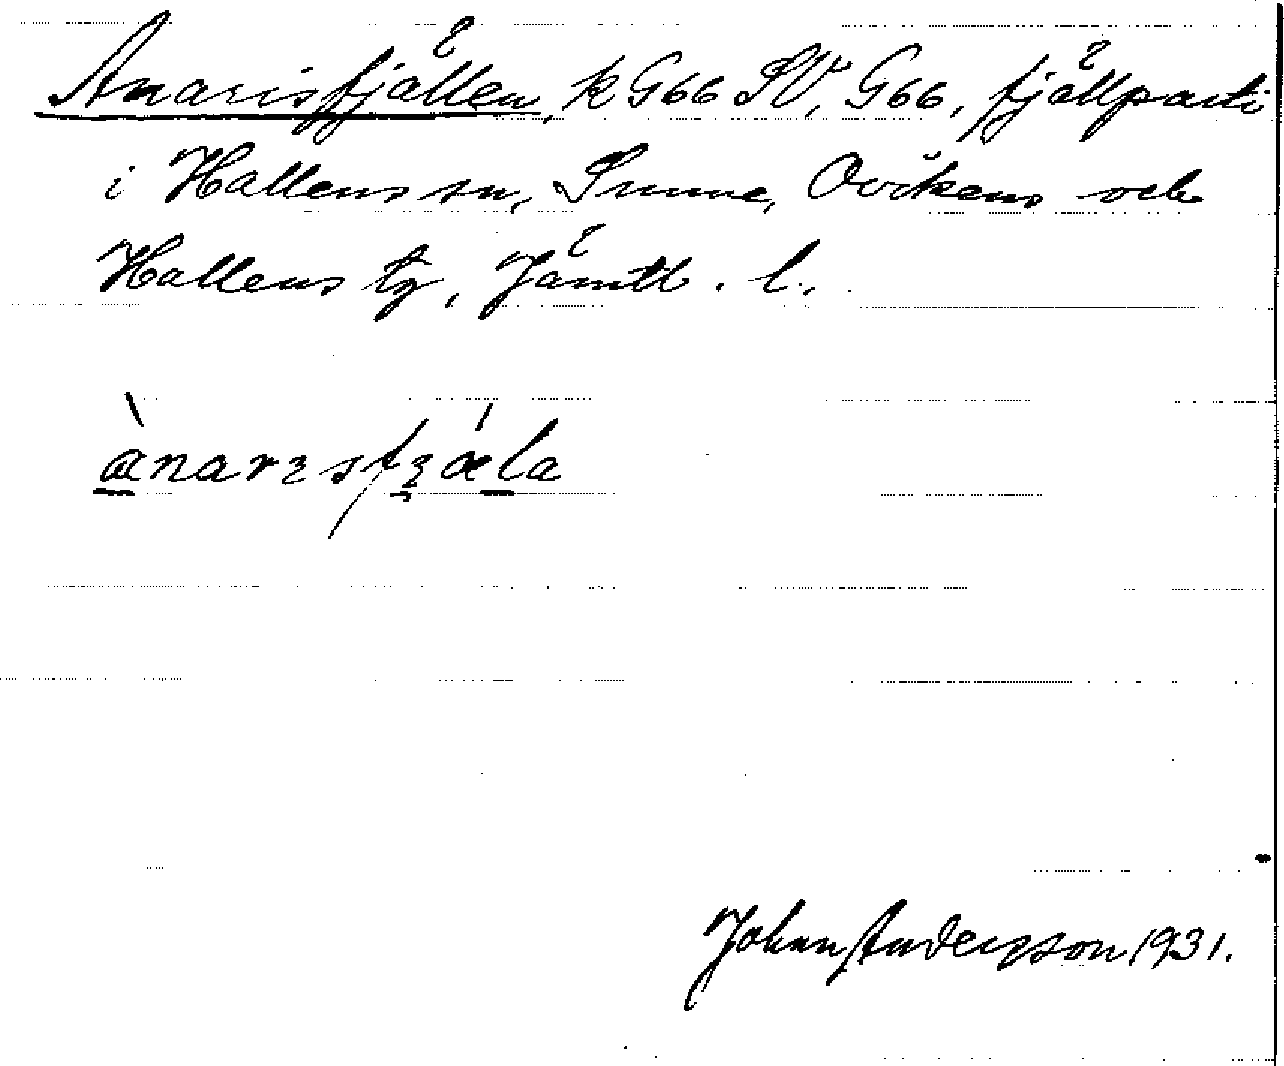 Anarisfjällen, k G66 SV, G66, fjällparti
i Hallens sn, Sunne, Ovikens och
Hallens tg, Jämtl. l.
ànarɿsfʒæla
Johan Andersson 1931.